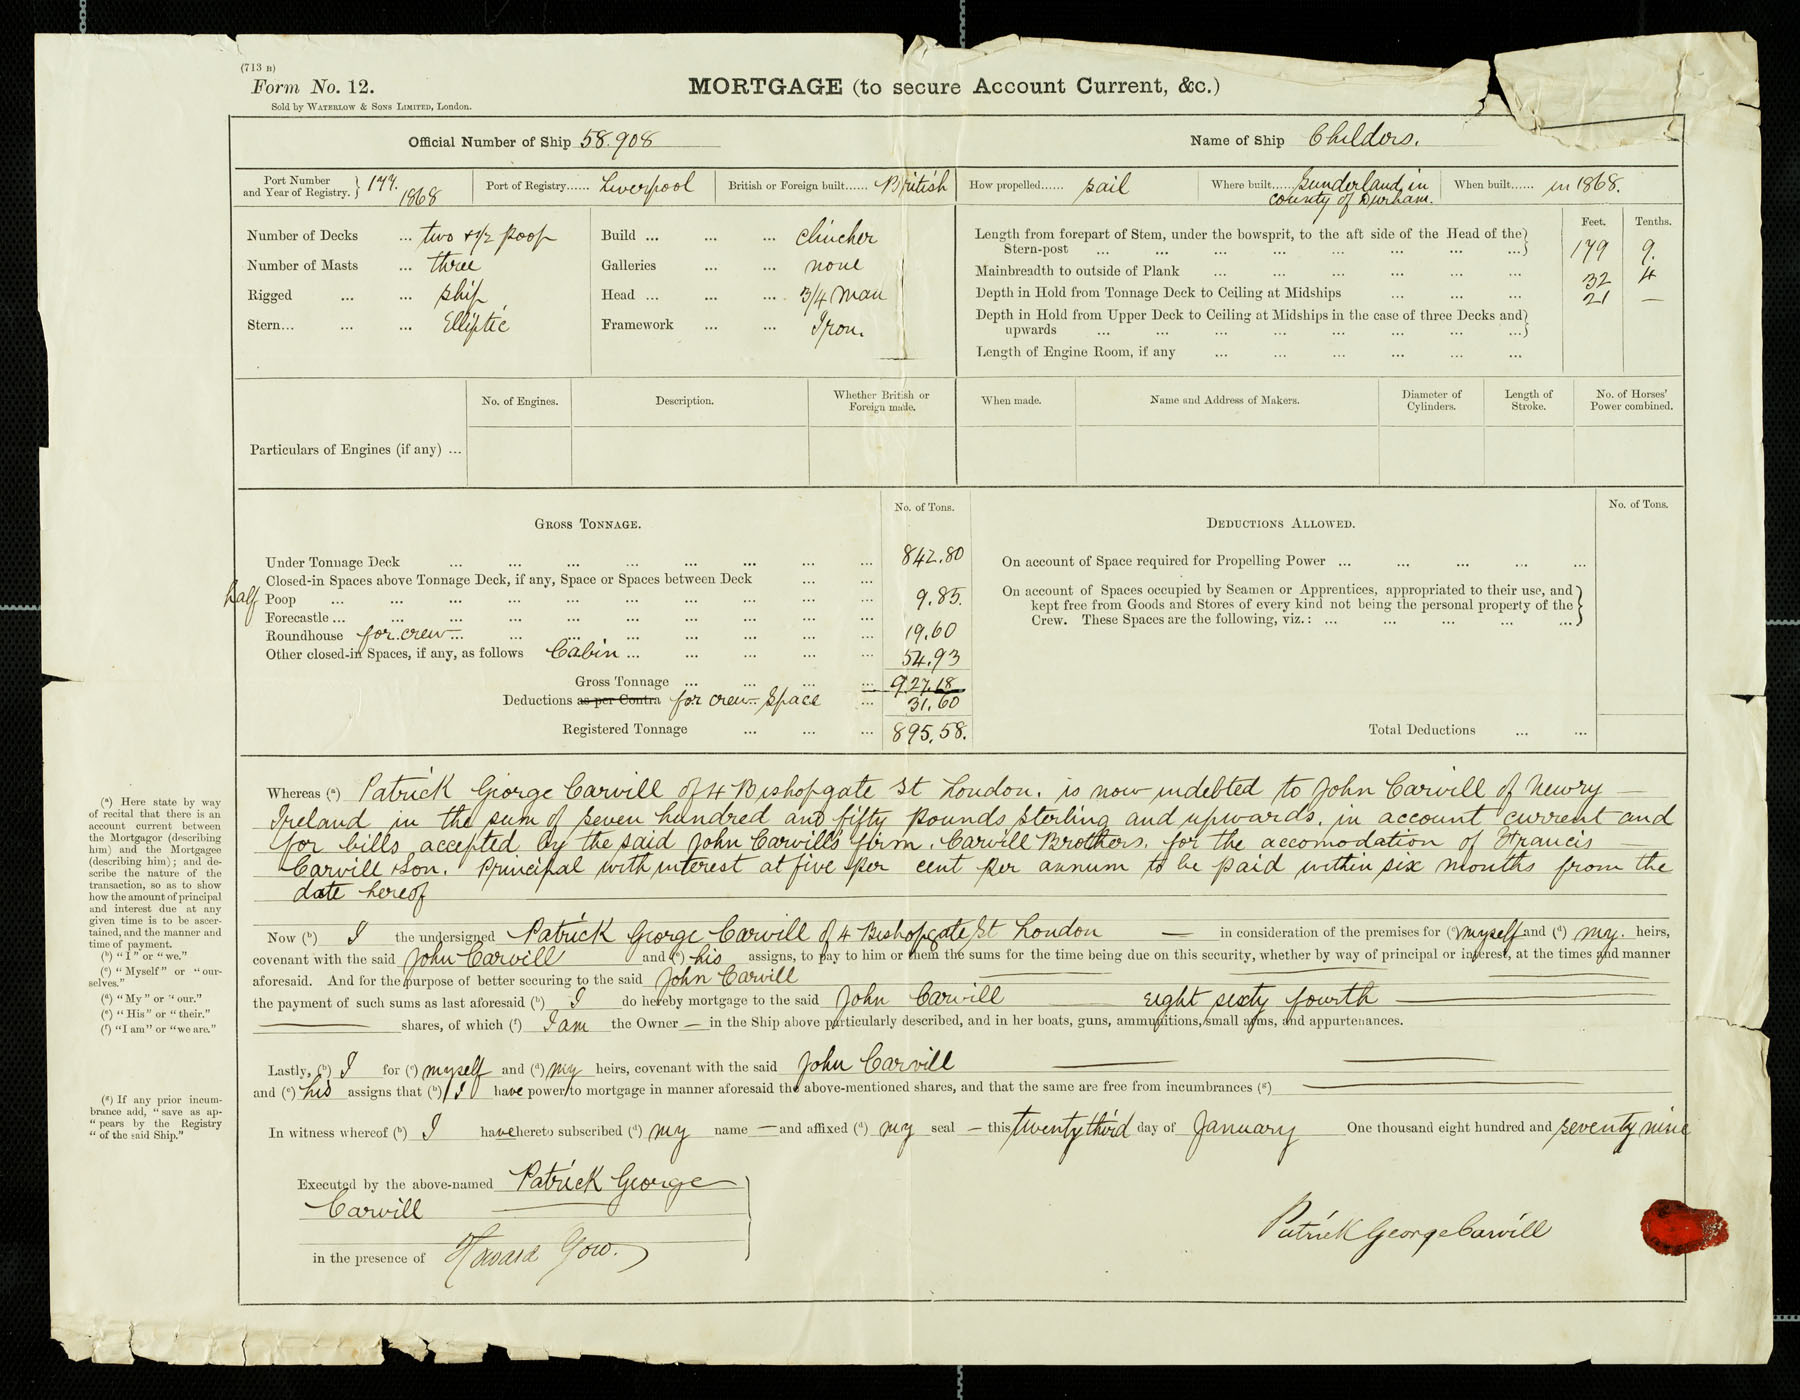 (713 B)
Form No. 12.
Sold by Waterlow & Sons Limited, London.
MORTGAGE (to secure Account Current, &c.)
Official Number of Ship 58.908
Name of Ship Childers.
Port Number and Year of Registry. } 177. 1868
Port of Registry...... Liverpool
British or Foreign built...... British
How propelled...... sail
Where built..... Sunderland in county of Durham.
When built...... in 1868.
Number of Decks ... two + 1/2 poop
Number of Masts ... three
Rigged ... ... ship
Stern... ... ... Elliptic
Build ... ... ... clincher
Galleries ... ... none
Head ... ... ... 3/4 man
Framework ... ... Iron.
Feet. Tenths.
Length from forepart of Stem, under the bowsprit, to the aft side of the Head of the }
Stern-post ... ... ... ... ... ... ... ...} 179 9.
Mainbreadth to outside of Plank ... ... ... ... ... ... 32 4
Depth in Hold from Tonnage Deck to Ceiling at Midships ... ... ... 21 —
Depth in Hold from Upper Deck to Ceiling at Midships in the case of three Decks and }
upwards ... ... ... ... ... ... ... ...}
Length of Engine Room, if any ... ... ... ... ... ...
No. of Engines. Description. Whether British or Foreign made. When made. Name and Address of Makers. Diameter of Cylinders. Length of Stroke. No. of Horses' Power combined.
Particulars of Engines (if any) ...
Gross Tonnage. No. of Tons.
Under Tonnage Deck ... ... ... ... ... ... ... ... 842.80
Closed-in Spaces above Tonnage Deck, if any, Space or Spaces between Deck ... ...
half Poop ... ... ... ... ... ... ... ... ... ... 9.85.
Forecastle ... ... ... ... ... ... ... ... ... ...
Roundhouse for crew ... ... ... ... ... ... ... ... 19.60
Other closed-in Spaces, if any, as follows Cabin ... ... ... ... ... 54.93
Gross Tonnage ... ... ... ... 927.18
Deductions as per Contra for crew space ... 31.60
Registered Tonnage ... ... ... 895.58.
Deductions Allowed. No. of Tons.
On account of Space required for Propelling Power ... ... ... ... ...
On account of Spaces occupied by Seamen or Apprentices, appropriated to their use, and }
kept free from Goods and Stores of every kind not being the personal property of the }
Crew. These Spaces are the following, viz.: ... ... ... ... ...}
Total Deductions ... ...
Whereas (a) Patrick George Carvill of 4 Bishopgate St London. is now indebted to John Carvill of Newry —
Ireland in the sum of seven hundred and fifty pounds sterling and upwards. in account current and
for bills accepted by the said John Carvill's firm. Carvill Brothers. for the accomodation of Francis —
Carvill & Son. Principal with interest at five per cent per annum to be paid within six months from the
date hereof
Now (b) I the undersigned Patrick George Carvill of 4 Bishopgate St London — in consideration of the premises for (c) myself and (d) my. heirs,
covenant with the said John Carvill and (e) his assigns, to pay to him or them the sums for the time being due on this security, whether by way of principal or interest, at the times and manner
aforesaid. And for the purpose of better securing to the said John Carvill
the payment of such sums as last aforesaid (b) I do hereby mortgage to the said John Carvill eight sixty fourth
shares, of which (f) I am the Owner — in the Ship above particularly described, and in her boats, guns, ammunitions, small arms, and appurtenances.
Lastly, (b) I for (c) myself and (d) my heirs, covenant with the said John Carvill
and (e) his assigns that (b) I have power to mortgage in manner aforesaid the above-mentioned shares, and that the same are free from incumbrances (g)
In witness whereof (b) I have hereto subscribed (d) my name — and affixed (d) my seal — this twenty third day of January One thousand eight hundred and seventy nine
Executed by the above-named Patrick George
Carvill
in the presence of Howard Gow.
Patrick George Carvill
(a) Here state by way
of recital that there is an
account current between
the Mortgagor (describing
him) and the Mortgagee
(describing him); and de-
scribe the nature of the
transaction, so as to show
how the amount of principal
and interest due at any
given time is to be ascer-
tained, and the manner and
time of payment.
(b) "I" or "we."
(c) "Myself" or "our-
selves."
(d) "My" or "our."
(e) "His" or "their."
(f) "I am" or "we are."
(g) If any prior incum-
brance add, "save as ap-
"pears by the Registry
"of the said Ship."